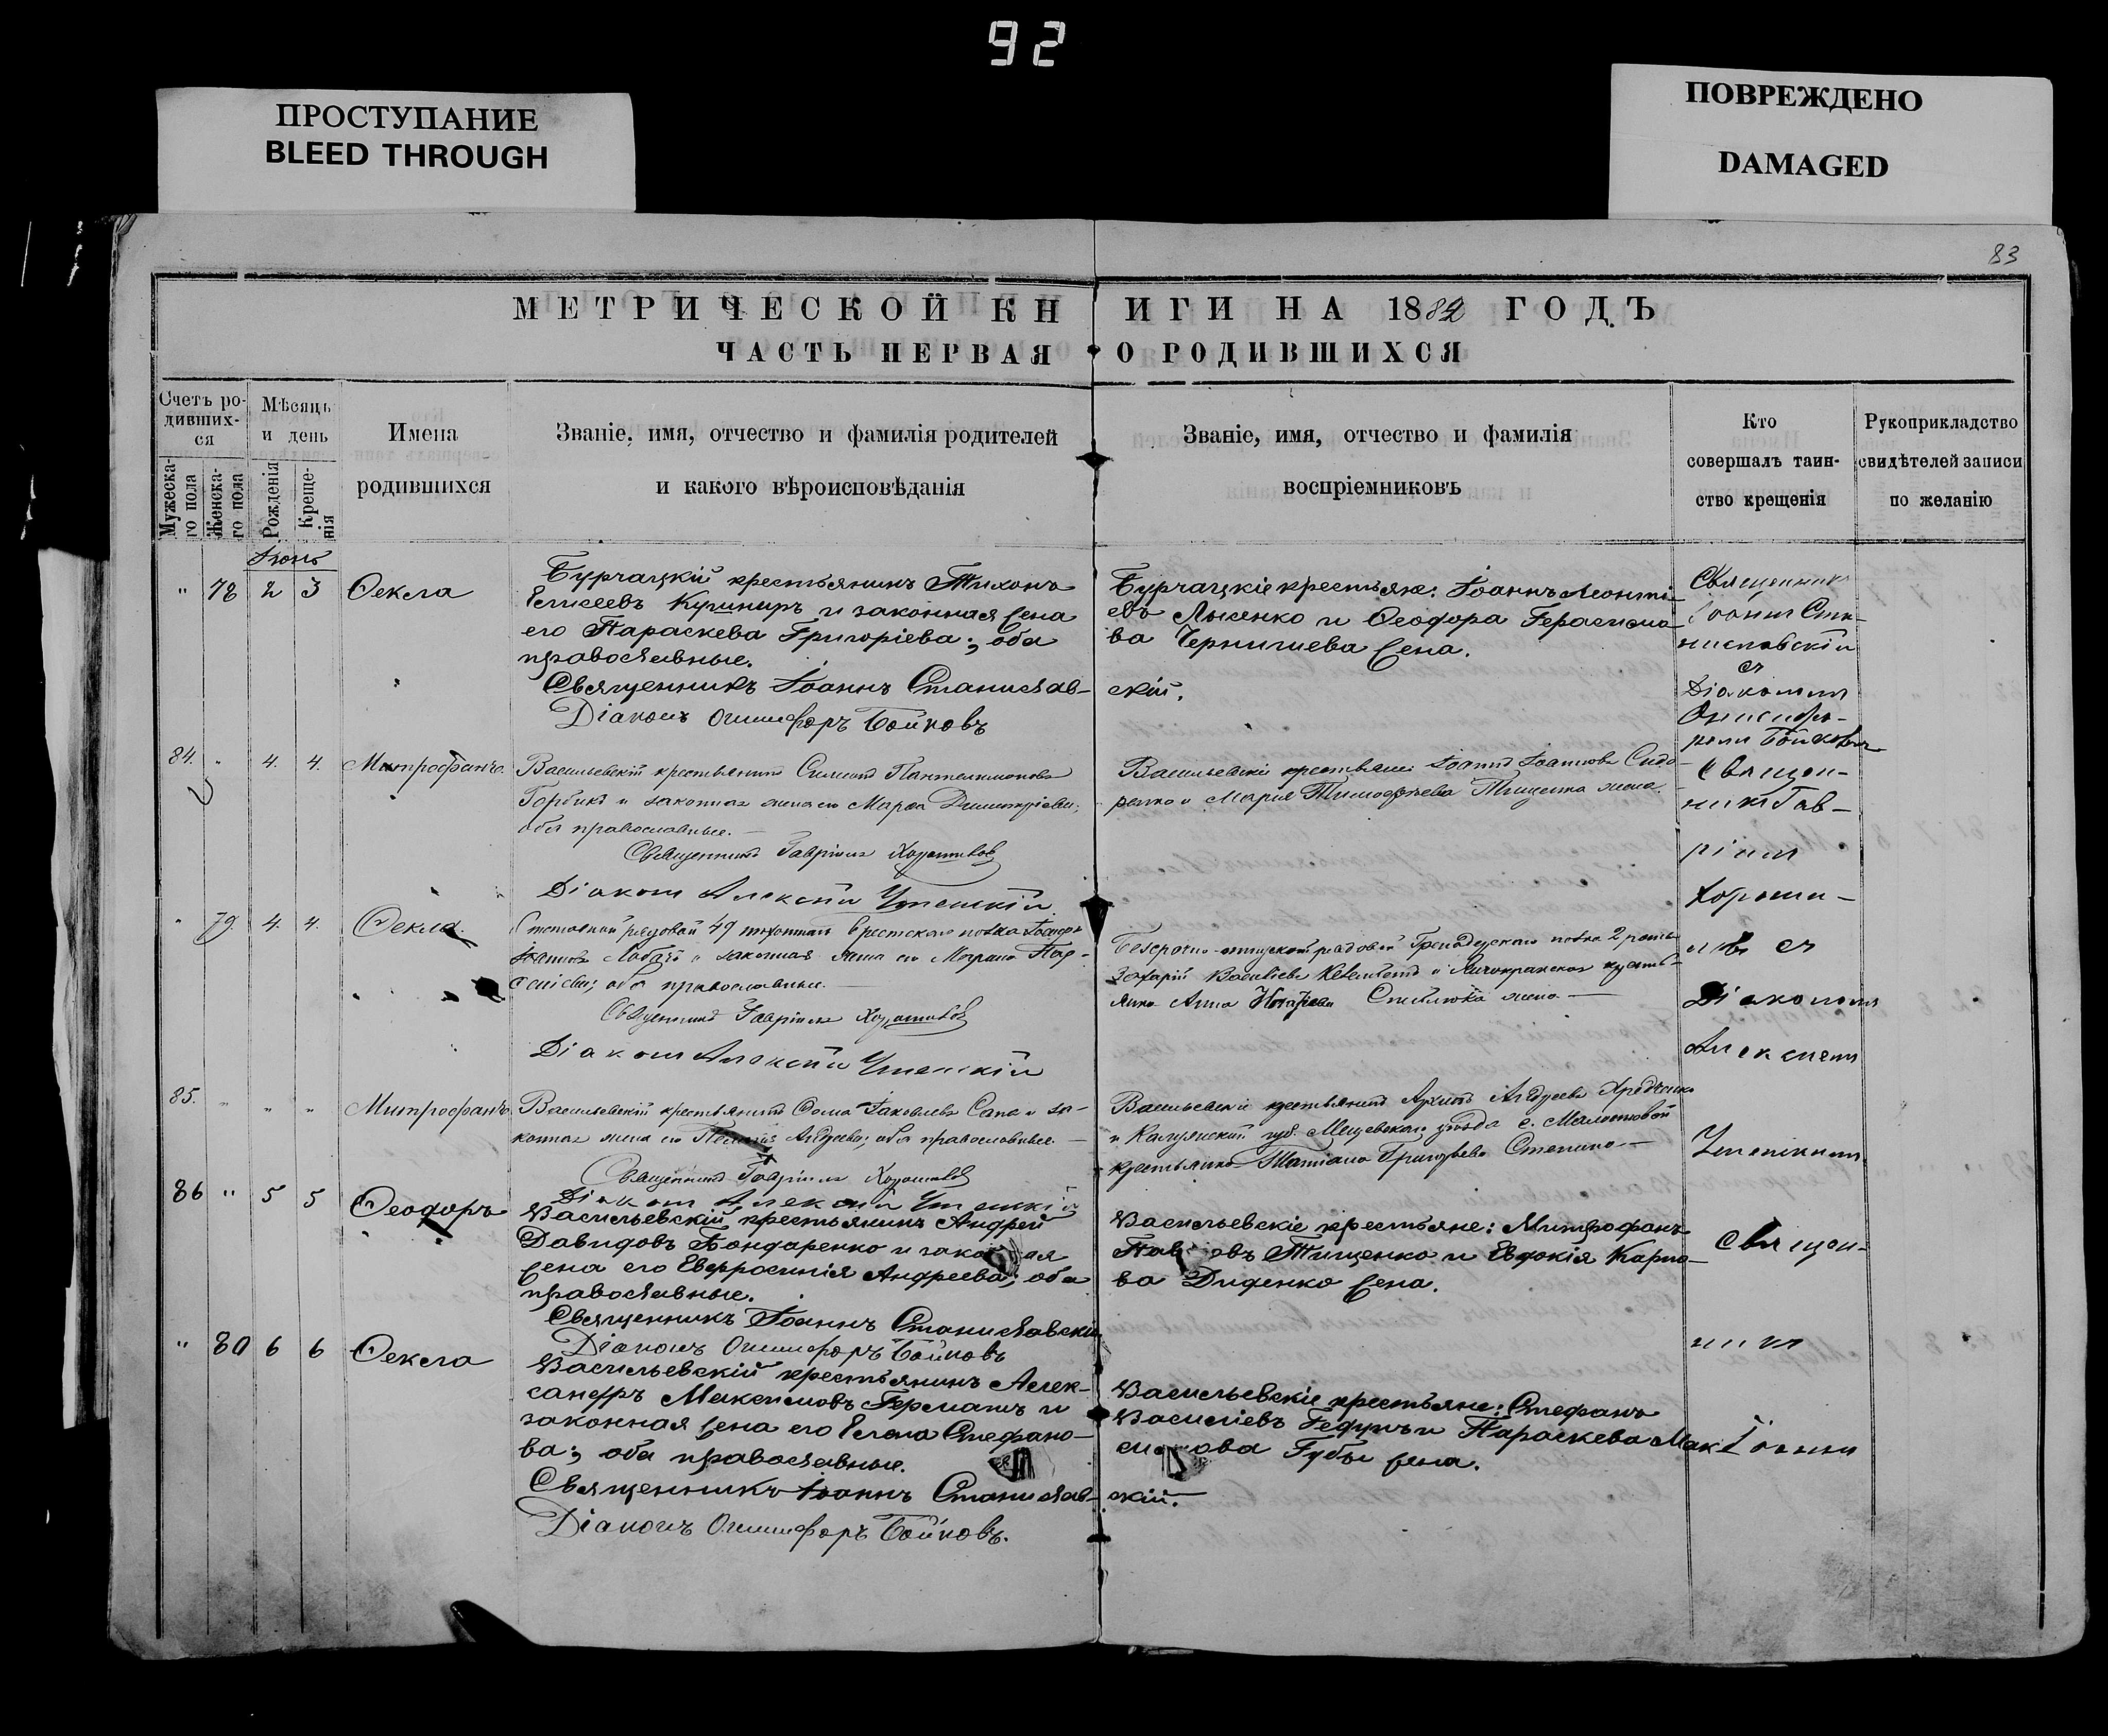 92
ПРОСТУПАНИЕ
BLEED THROUGH
ПОВРЕЖДЕНО
DAMAGED
83
МЕТРИЧЕСКОЙ КНИГИ НА 1882 ГОДЪ
ЧАСТЬ ПЕРВАЯ О РОДИВШИХСЯ
Счетъ ро-
дивших-
ся
Мужеска-
го пола
Женска-
го пола
Мѣсяцъ
и день
Рожденія
Креще-
нія
Имена
родившихся
Званіе, имя, отчество и фамилія родителей
и какого вѣроисповѣданія
Званіе, имя, отчество и фамилія
воспріемниковъ
Кто
совершалъ таин-
ство крещенія
Рукоприкладство
свидѣтелей записи
по желанію
Іюнь
" 78 2 3 Ѳекла
Бурчацкій крестьянинъ Тихонъ
Елисеевъ Кушниръ и законная жена
его Параскева Григоріева; оба
православные.
Священникъ Іоаннъ Станиславскій.
Діаконъ Онисифоръ Бойковъ
Бурчацкіе крестьяне: Іоаннъ Леонті-
евъ Лысенко и Ѳеодора Герасимо-
ва Чернишева жена.
Священникъ
Іоаннъ Ста-
ниславскій
съ
Діакономъ
Онисифо-
ромъ Бойковымъ
84. " 4. 4. Митрофанъ.
Васильевскій крестьянинъ Симеонъ Пантелимоновъ
Горбикъ и законная жена его Марѳа Димитріева;
оба православные.
Священникъ Гавріилъ Хорошковъ
Діаконъ Алексій Успенскій
Васильевскіе крестьяне: Іоаннъ Іоанновъ Сидо-
ренко и Марія Тимоѳеева Тищенко жена.
Священ-
никъ Гав-
ріилъ
Хорош-
ковъ съ
Діакономъ
Алексіемъ
Успенскимъ
" 79. 4. 4. Ѳекла.
рядовой 49 Брестскаго полка Іосифъ
Іоанновъ и законная жена его
оба православные.
Священникъ Гавріилъ Хорошковъ
Діаконъ Алексій Успенскій
Безсрочно-отпускной рядовой Гренадерскаго полка 2 роты
Захарій Васильевъ и
Анна жена.
85. " " " Митрофанъ.
Васильевскій крестьянинъ Ѳома Іаковлевъ Сапа и за-
конная жена его Пелагія Авдѣева; оба православные.
Священникъ Гавріилъ Хорошковъ
Діаконъ Алексій Успенскій
Васильевскій крестьянинъ Архипъ Авдѣевъ
и Калужской губ. Мещевскаго уѣзда с.
крестьянка Татіана Григорьева
86 " 5 5 Ѳеодоръ
Васильевскій крестьянинъ Андрей
Давидовъ Бондаренко и законная
жена его Евфросинія Андреева; оба
православные.
Священникъ Іоаннъ Станиславскій
Діаконъ Онисифоръ Бойковъ
Васильевскіе крестьяне: Митрофанъ
Павловъ Тищенко и Евдокія Карпо-
ва Диденко жена.
Священ-
никъ
Іоаннъ
" 80 6 6 Ѳекла
Васильевскій крестьянинъ Алек-
сандръ Максимовъ Германъ и
законная жена его Елена Стефано-
ва; оба православные.
Священникъ Іоаннъ Станиславскій.
Діаконъ Онисифоръ Бойковъ.
Васильевскіе крестьяне: Стефанъ
Василіевъ Гедунъ и Параскева Мак-
симова Губы жена.